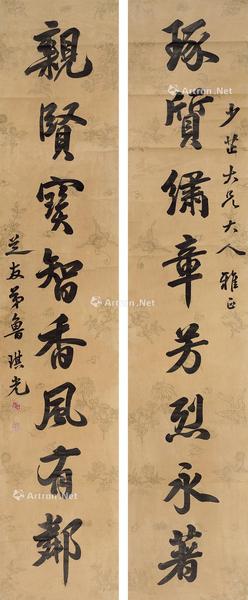 琢質繡章芳烈永著
少芷大兄大人雅正
親賢寶智香風有鄰
芝友弟魯琪光
Artron.Net
Artron.Net
Artron.Net
Artron.Net
Artron.Net
Artron.Net